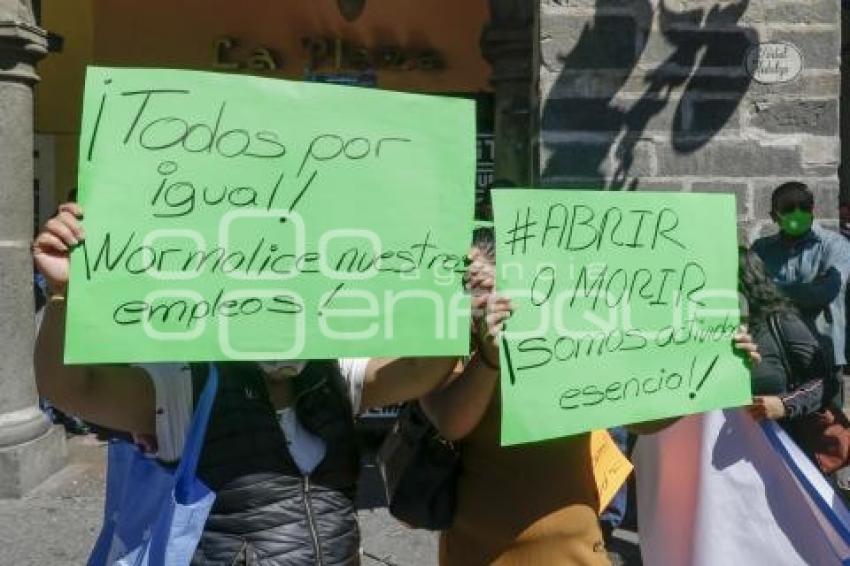 La Plaza
Portal Hidalgo
¡Todos por
igual!
¡Normalice nuestros
empleos!
#ABRIR
O MORIR
¡somos actividad
esencial!
agencia
enfoque